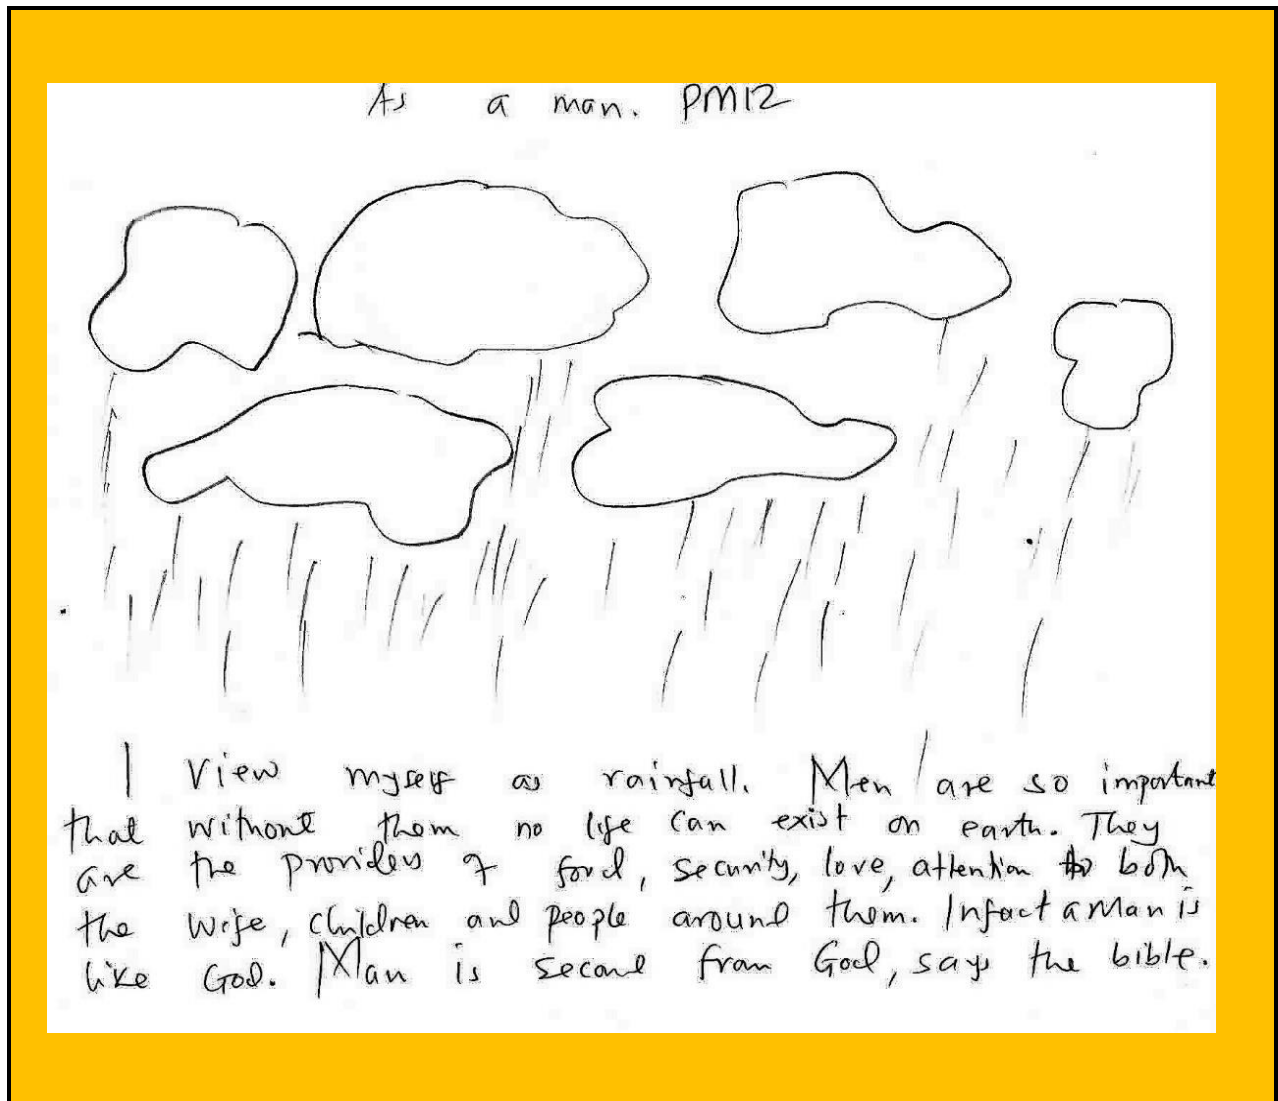 As a man. PM12
I view myself as rainfall. Men are so important
that without them no life can exist on earth. They
are the providers of food, security, love, attention to both
the wife, children and people around them. Infact a Man is
like God. Man is second from God, says the bible.